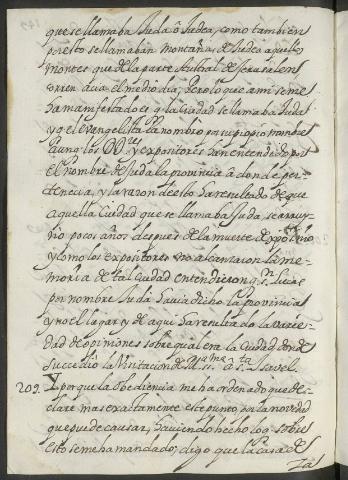 que se llamaba Juda ô Judea, como tambien
por esto se llamaban montañas de Judea aquellos
montes que de la parte Austral de Jerusalem
corren âcia el medio dia; Pero lo que ami se me
ha manifestado es q̃ la Ciudad se llamaba Juda
y q̃ el evangelista la nombro por su propio nombre
aunq̃ los DD.res y expositores han entendido por
el nombre de Juda la provincia â donde per-
tenecia, y la razon de esto ha resultado de que
aquella Ciudad que se llamaba Juda se arruy-
no pocos años despues de la muerte de xpto
y como los expositores no alcanzaron la me-
moria de tal Ciudad entendieron q̃ S.n Lucas
por nombre Juda havia dicho la provincia
y no el lugar; y de aqui ha resultado la varie-
dad de opiniones sobre qual era la Ciudad donde
succedio la Visitacion de M.a SS.ma â S.ta Isavel.
209. Y porque la obediencia me ha ordenado que de-
clare mas exactamente este punto, por la novedad
que puede causar; haviendo hecho lo q̃ sobre
esto se me ha mandado; digo que la casa de
Za